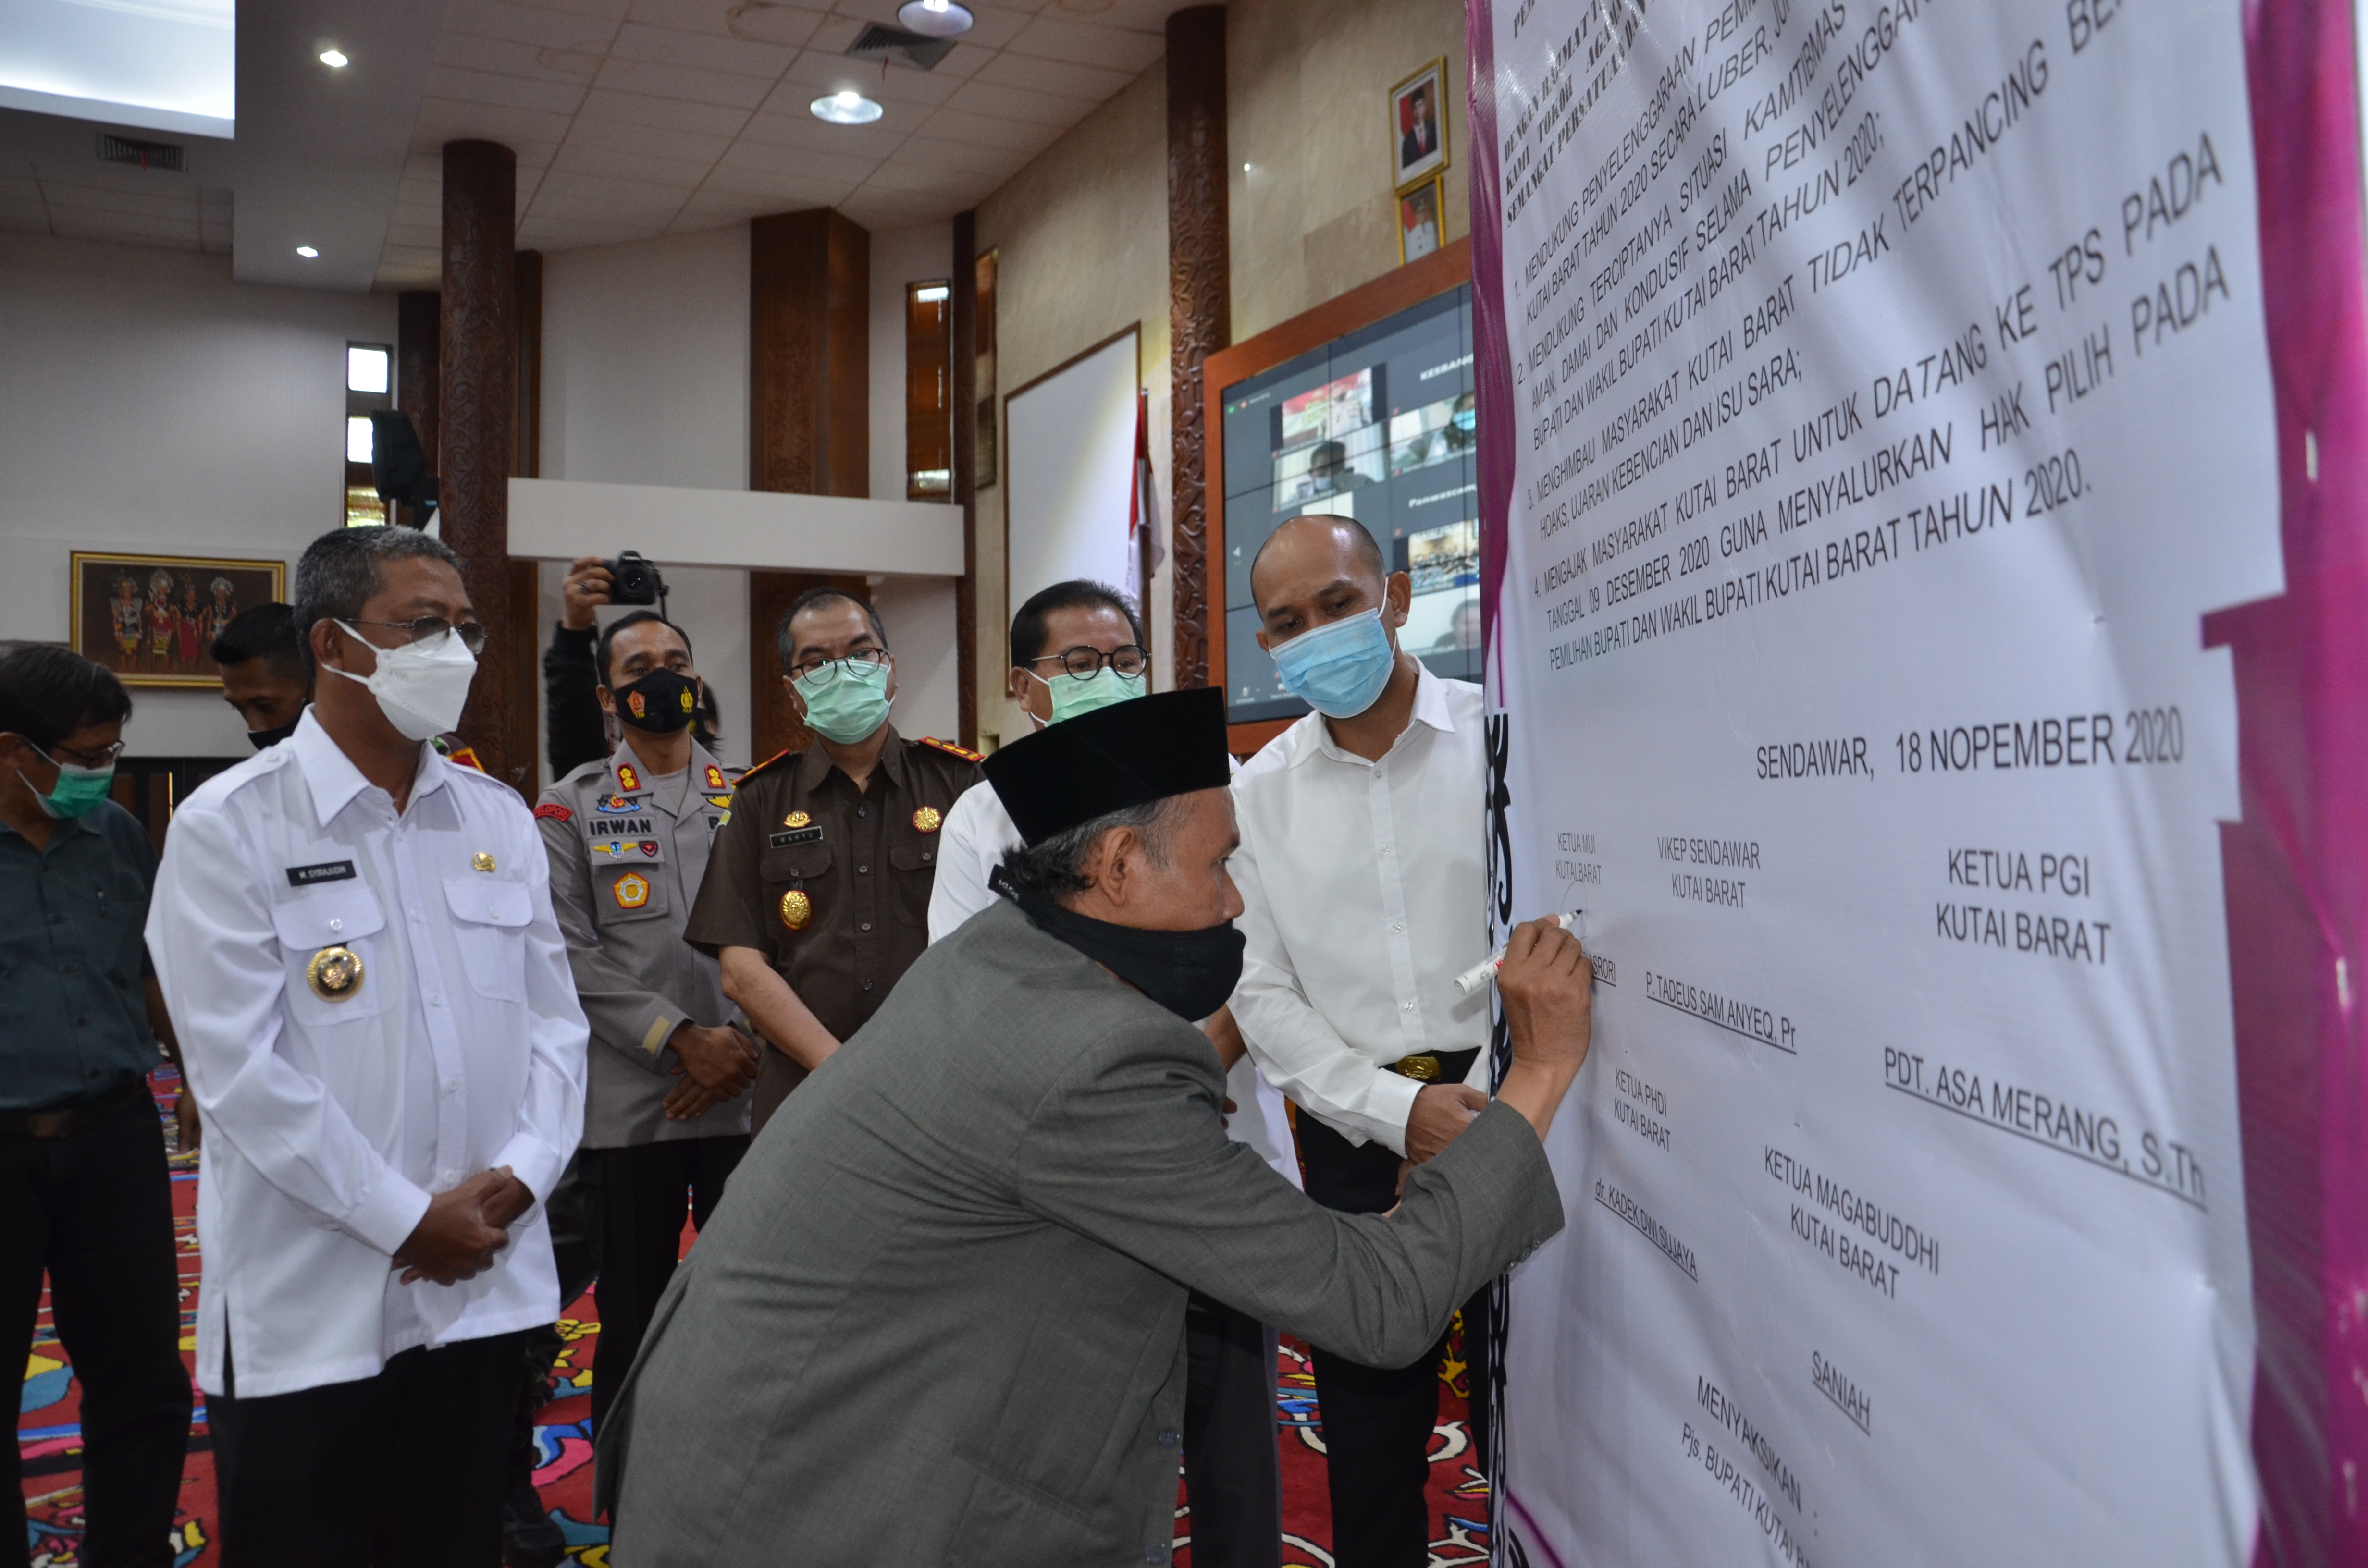 DENGAN RAHMAT
KAMI TOKOH AGAMA
SEMANGAT PERSATUAN DAN
1. MENDUKUNG PENYELENGGARAAN
KUTAI BARAT TAHUN 2020 SECARA LUBER,
2. MENDUKUNG TERCIPTANYA SITUASI KAMTIBMAS
AMAN, DAMAI DAN KONDUSIF SELAMA PENYELENGGAR
BUPATI DAN WAKIL BUPATI KUTAI BARAT TAHUN 2020;
3. MENGHIMBAU MASYARAKAT KUTAI BARAT TIDAK TERPANCING BE
HOAKS, UJARAN KEBENCIAN DAN ISU SARA;
4. MENGAJAK MASYARAKAT KUTAI BARAT UNTUK DATANG KE TPS PADA
TANGGAL 09 DESEMBER 2020 GUNA MENYALURKAN HAK PILIH PADA
PEMILIHAN BUPATI DAN WAKIL BUPATI KUTAI BARAT TAHUN 2020.
SENDAWAR, 18 NOPEMBER 2020
KETUA MUI
KUTAI BARAT
VIKEP SENDAWAR
KUTAI BARAT
KETUA PGI
KUTAI BARAT
SRORI
P. TADEUS SAM ANYEQ, Pr
PDT. ASA MERANG, S.Th
KETUA PHDI
KUTAI BARAT
KETUA MAGABUDDHI
KUTAI BARAT
dr. KADEK DWI SUJAYA
SANIAH
MENYAKSIKAN :
Pjs. BUPATI KUTAI
KESBANG
Panwascam
M. SYIRAJUDIN
IRWAN
WAHYU